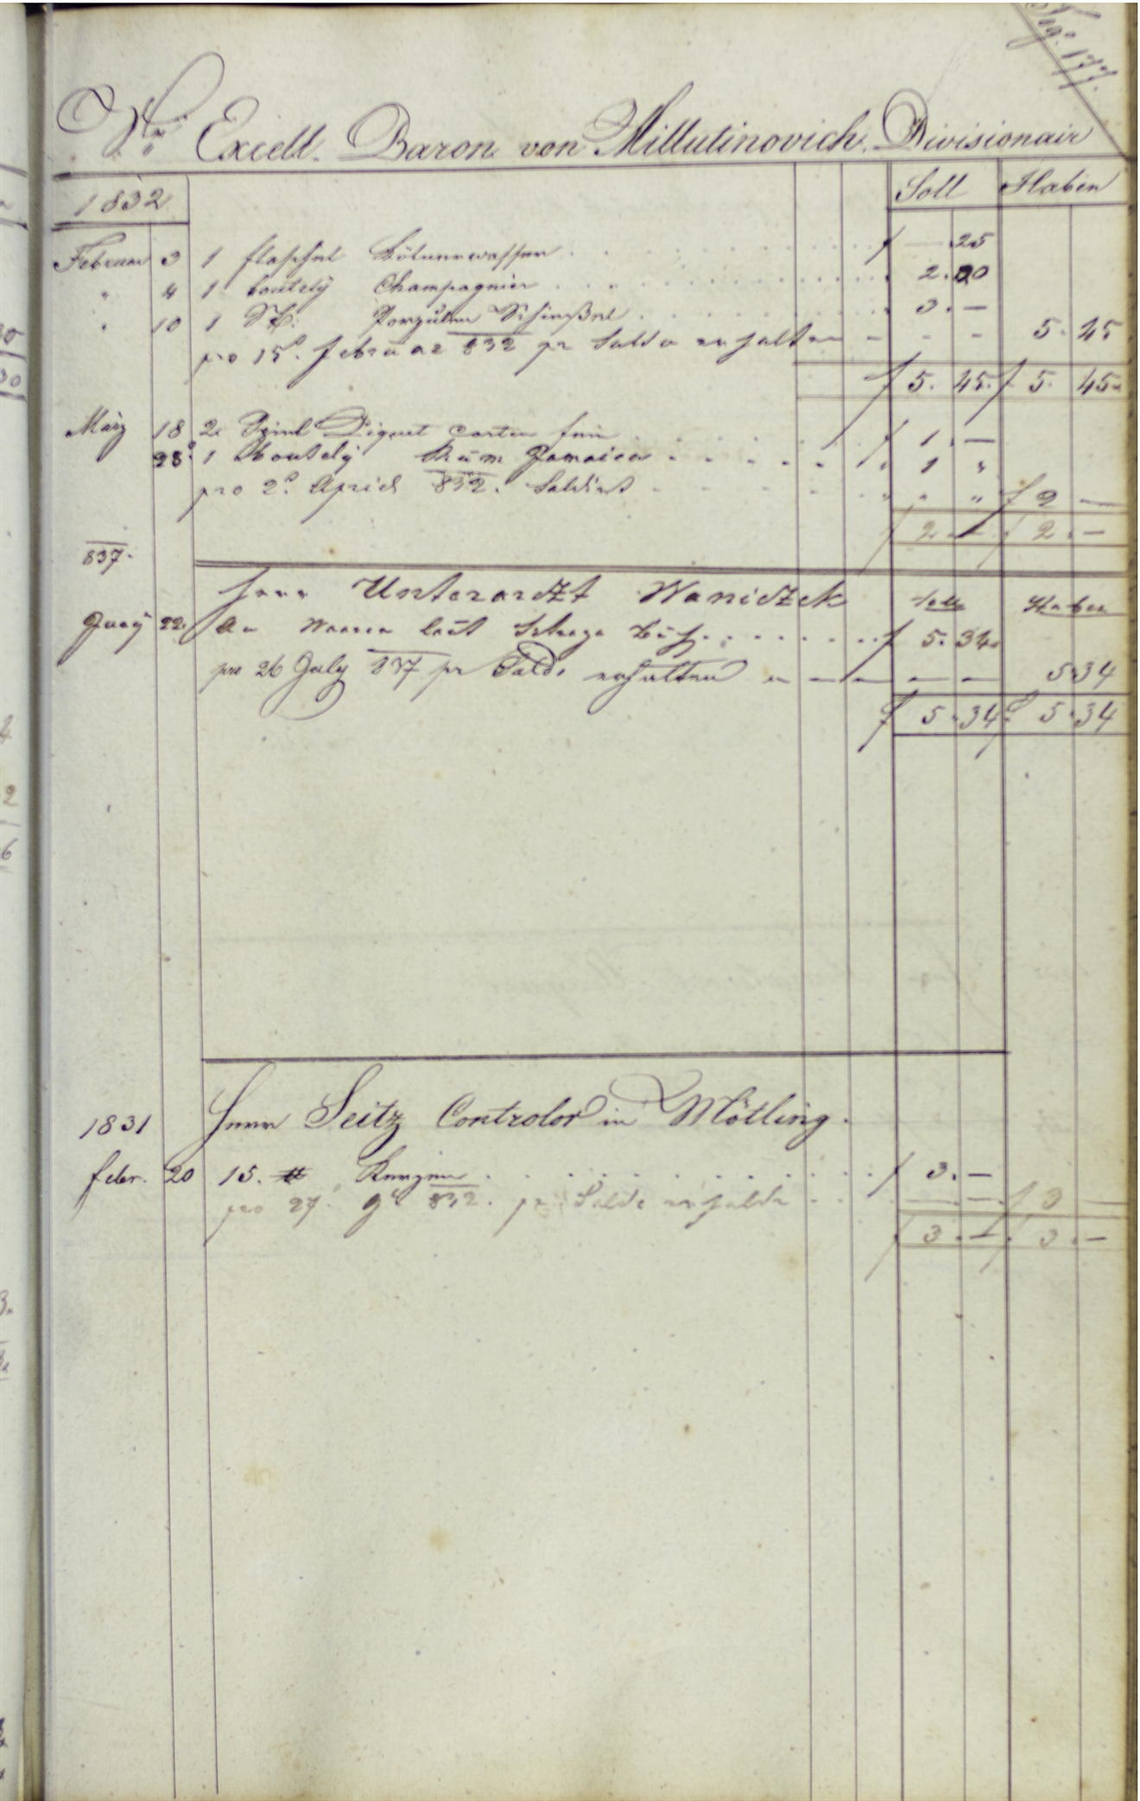 Pag. 177.
Sr. Excell. Baron von Millutinovich Divisionair
1832 Soll Haben
Februar 3 1 flaschel Kölnerwasser f — 25
" 4 1 boutely Champagnier 2. 20
" 10 1 St: Porzulan 3. —
pro 15t. februar 832 pr Saldo erhalten — — — 5. 45
f 5. 45. f 5. 45
März 18 2 Spiel Piquet Carten fein f 1. —
28. 1 Boutely Rum Jamaica 1 "
pro 2t. April 832. Saldirt " " f 2 —
f 2. — f 2. —
837.
Herr Unterarzt Waniczek Soll Haben
Juny 22. An Waaren laut Strazza Buch f 5. 34
pro 26 July 837 pr Saldo erhalten — — — — 5 34
f 5. 34 f 5. 34
1831 Herr Seitz Controlor in Mötling.
febr. 20 15. # Kerzen f 3. —
pro 27. 832. pr Saldo erhalten — — f 3 —
f 3. — f 3. —